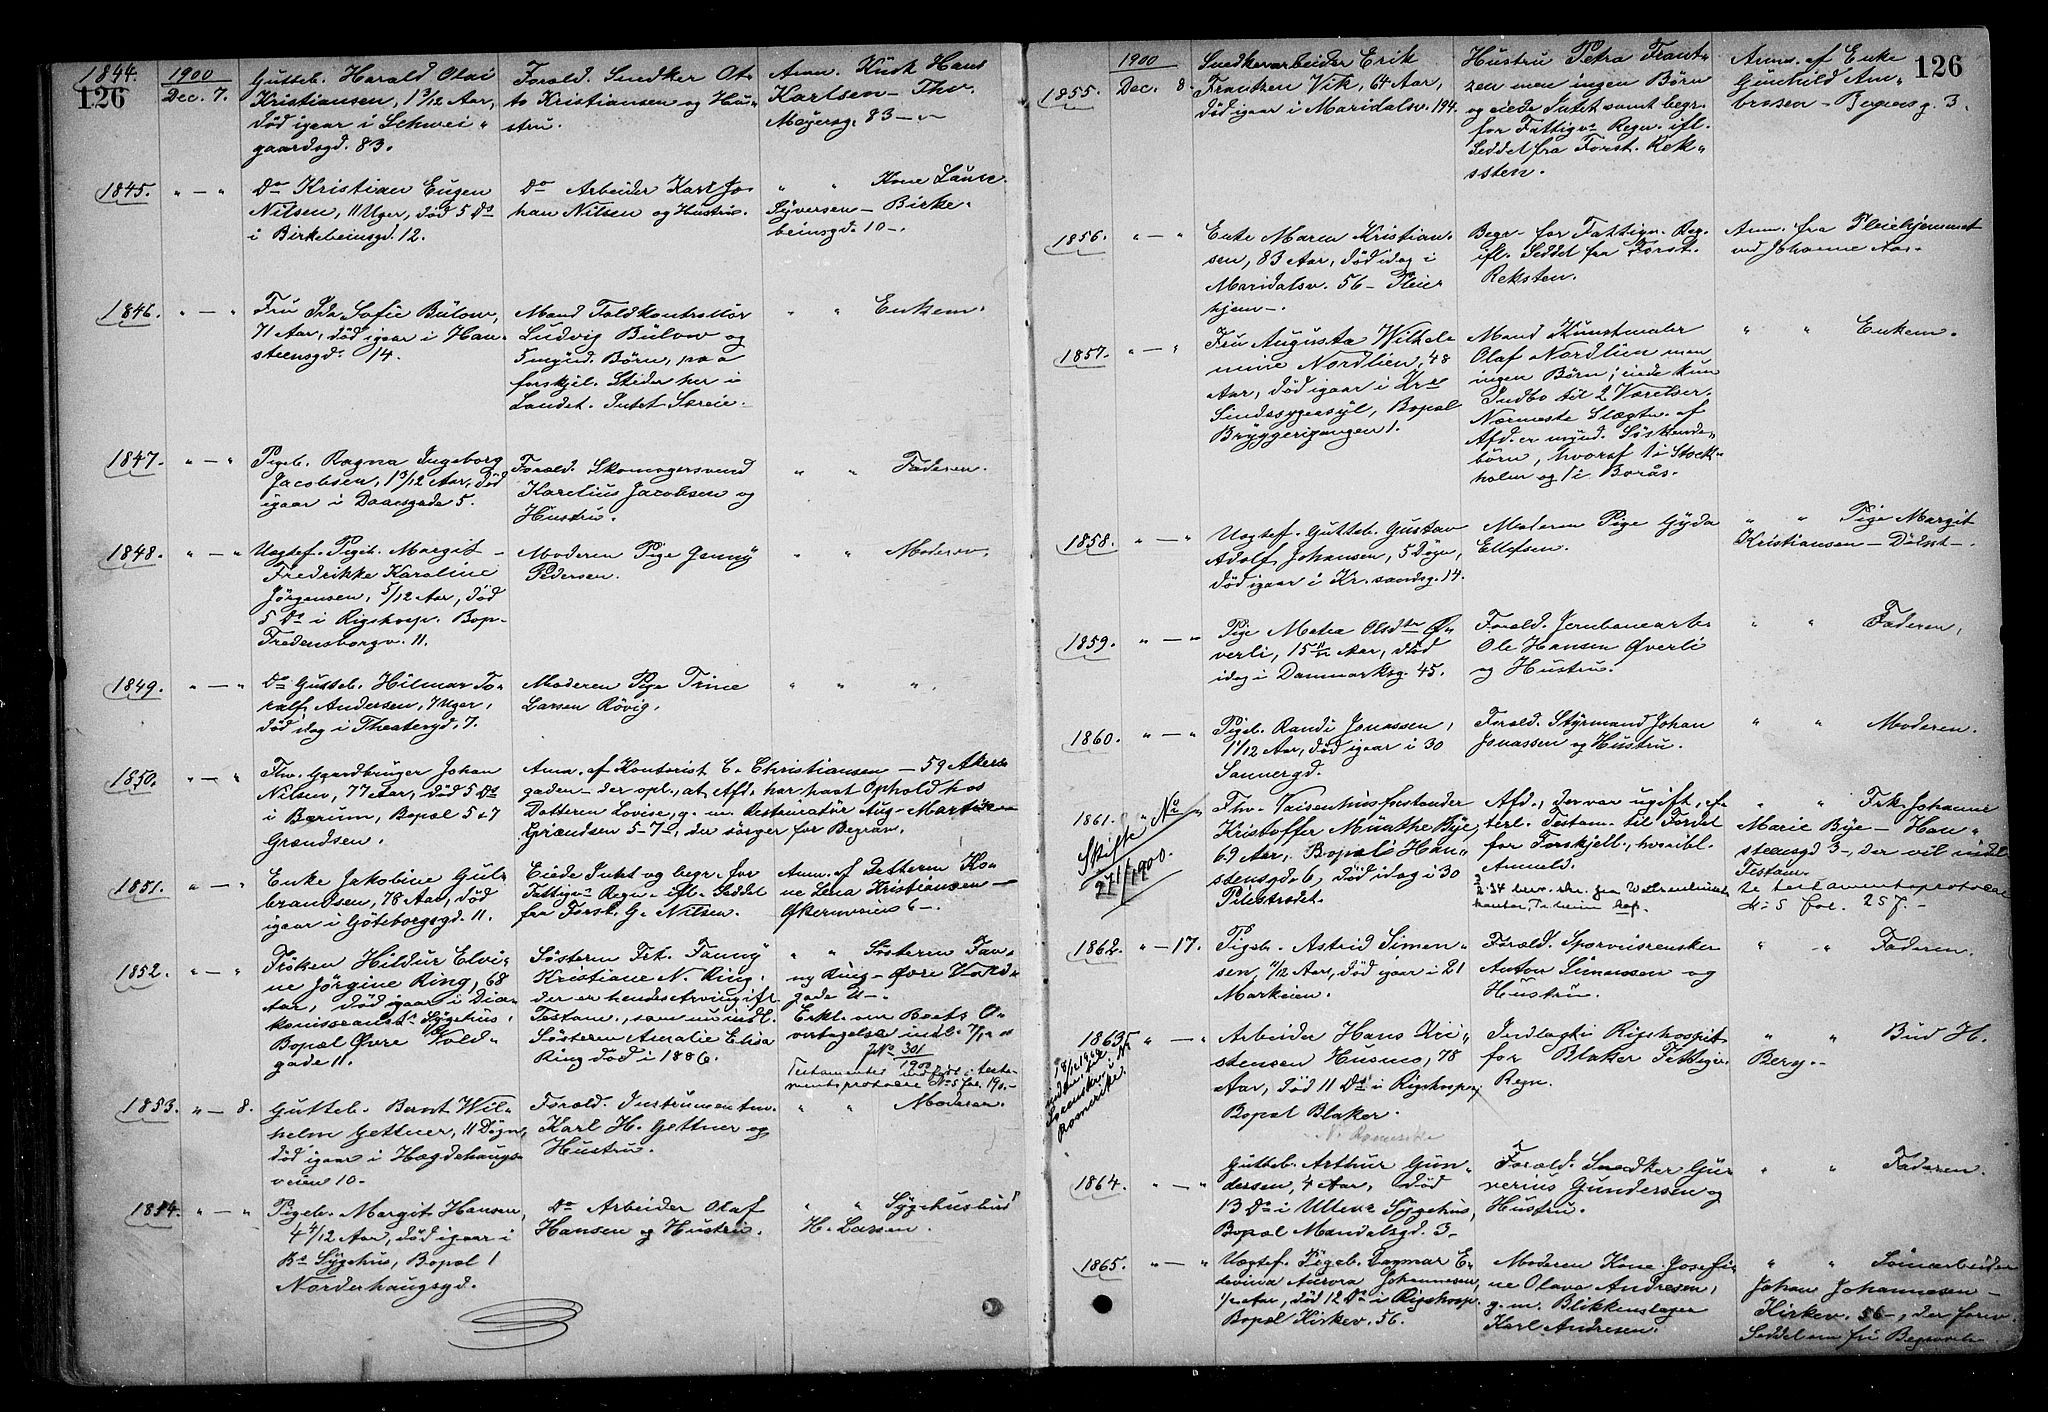 126
1844. 1900 Dec. 7. Gutteb. Harald Olai
Kristiansen, 1 3/12 Aar,
död igaar i Schwei-
gaardsgd. 83.
Foræld. Snedker Ot-
to Kristiansen og Hu-
stru.
Anm. Kusk Hans
Karlsen - Thv.
Meyersg. 83 -
1845. " - " Do Kristian Eugen
Nilsen, 11 Uger, död 5 Ds
i Birkebeinsgd. 12.
Do Arbeider Karl Jo-
han Nilsen og Hustru.
" " Kone Laura
Syversen - Birke-
beinsgd. 10 -.
1846. " - " Fru Ida Sofie Bülow,
71 Aar, död igaar i Han-
steensgd. 14.
Mand Toldkontrollör
Ludvig Bülow og
5 mynd. Börn, paa
forskjel. Steder her i
Landet. Intet Særeie.
" " Enkem.
1847. " - " Pigeb. Ragna Ingeborg
Jacobsen, 1 3/12 Aar, död
igaar i Daasgade 5.
Foræld. Skomagersvend
Karelius Jacobsen og
Hustru.
" " Faderen.
1848. " - " Uægtef. Pigeb. Margit
Fredrikke Karoline
Jörgensen, 5/12 Aar, död
5 Ds i Rigshosp. Bop.
Fredensborgv. 11.
Moderen Pige Jenny
Pedersen.
" " Moderen.
1849. " - " Do Gutteb. Hilmar To-
ralf Andersen, 7 Uger,
död idag i Theatergd. 7.
Moderen Pige Trine
Larsen Rövig.
" " "
1850. " - " Fhv. Gaardbruger Johan
Nilsen, 77 Aar, död 5 Ds
i Bærum, Bopæl 5-7
Grændsen.
Anm. af Kontorist C. Christiansen - 59 Akers-
gaden - der opl., at Afd. har havt Ophold hos
Datteren Lovise, g. m. Restauratör Aug. Martin
Grændsen 5-7, der sörger for Begrav.
1851. " - " Enke Jakobine Gul-
brandsen, 78 Aar, död
igaar i Göteborgsgd. 11.
Eiede Intet og begr. for
Fattigv. Regn. ifl. Seddel
fra Forst. G. Nilsen.
Anm. af Datteren Ko-
ne Lena Kristiansen -
Økernveien 6 -.
1852. " - " Fröken Hildur Elvi-
ne Jörgine Ring, 68
Aar, död igaar i Dia-
konisseanst. Sygehus,
Bopæl Øvre Vold-
gade 11.
Sösteren Frk. Fanny
Kristiane N. Ring,
der er hendes Arving ifl.
Testam., som nu indl.
Sösteren Amalie Elisa
Ring död i 1886.
" " Sösteren Fan-
ny Ring - Øvre Vold-
gade 11 -.
Erkl. om Boets O-
vertagelse indl.
JNo 301
1900
Testamentet indført i testa-
mentsprotocol No 5 fol. 190.-
1853. " - 8. Gutteb. Bernt Wil-
helm Gettner, 11 Dögn,
död igaar i Hægdehaugs-
veien 10.
Foræld. Instrumentm.
Karl H. Gettner og
Hustru.
" " Moderen.
1854. " - " Pigeb. Margit Hansen,
4 4/12 Aar, död igaar i
Bs Sygehus, Bopæl 1
Norderhaugsgd.
Do Arbeider Olaf
Hansen og Hustru.
" " Sygehusbud
H. Larsen.
126
1855. 1900 Dec. 8. Snedkerarbeider Erik
Frantzen Vik, 64 Aar,
död igaar i Maridalsv. 194.
Hustru Petra Frant-
zen men ingen Börn
og eiede Intet samt begr.
for Fattigv. Regn. ifl.
Seddel fra Forst. Rek-
ssten.
Anm. af Enke
Gunhild Am-
brosen - Bergensg. 3.
1856. " - " Enke Maren Kristian-
sen, 83 Aar, död idag i
Maridalsv. 56 - Pleie-
hjem -.
Begr. for Fattigv. Reg.
ifl. Seddel fra Forst.
Reksten.
Anm. fra Pleiehjemmet
ved Johanne Aas.
1857. " - " Fru Augusta Wilhel-
mine Nordlien, 48
Aar, död igaar i Kra
Sindssygeasyl, Bopæl
Bryggerigangen 1.
Mand Kunstmaler
Olaf Nordlien men
ingen Börn; eiede kun
Indbo til 2 Værelser.
Nærmeste Slægtn. af
Afd. er mynd. Söskende-
börn, hvoraf 1 i Stock-
holm og 1 i Borås.
" " Enkem.
1858. " - " Uægtef. Gutteb. Gustav
Adolf Johansen, 5 Dögn,
död igaar i Kr.sandsg. 14.
Moderen Pige Gyda
Ellefsen.
" " Pige Margit
Kristiansen - Do st -.
1859. " - " Pige Matea Olsdtr Ø-
verli, 15 11/12 Aar, död
idag i Danmarksg. 45.
Foræld. Jernbanearb.
Ole Hansen Øverli
og Hustru.
" " Faderen.
1860. " - " Pigeb. Randi Jonassen,
1 1/12 Aar, död igaar i 30
Sannergd.
Foræld. Styrmand Johan
Jonassen og Hustru.
" " Moderen.
1861. " - " Fhv. Vaisenhusforstander
Kristoffer Munthe Bye,
69 Aar, Bopæl i Han-
stensgd. 6, död idag i 30
Pilestrædet.
Skifte No
27/1900.
Afd., der var ugift, ef-
terl. Testam. til Fordel
for Forskjell., hvoribl.
Anmeld.
" " Frk. Johanne
Marie Bye - Han-
steensgd 3 -, der vil indl.
Testam.
Se testamentsprotocol
No 5 fol. 257.-
1862. " - 17. Pigeb. Astrid Simen-
sen, 11/12 Aar, död igaar i 21
Markveien.
Foræld. Sporveisrensker
Anton Simensen og
Hustru.
" " Faderen.
1863. " - " Arbeider Hans Kri-
stensen Husmo, 78
Aar, död 11 Ds i Rigshosp.,
Bopæl Blaker.
N. Romerike
Indlagt i Rigshospit.
for Blaker Fattigv.
Regn.
" " Bud H.
Berg.
1864. " - " Gutteb. Arthur Gun-
dersen, 4 Aar, död
13 Ds i Ullevs Sygehus,
Bopæl Mandalsgd. 3.
Foræld. Snedker Gu-
verius Gundersen og
Hustru.
" " Faderen.
1865. " - " Uægtef. Pigeb. Dagmar E-
devina Aurora Johannesen,
1/2 Aar, död 12 Ds i Rigshosp.
Bopæl Kirkev. 56.
Moderen Kone Josefi-
ne Olava Andresen,
g. m. Blikkenslager
Karl Andresen.
" " Sömarbeider
Johan Johannesen -
Kirkev. 56 -, der forev.
Seddel om fri Begravelse.